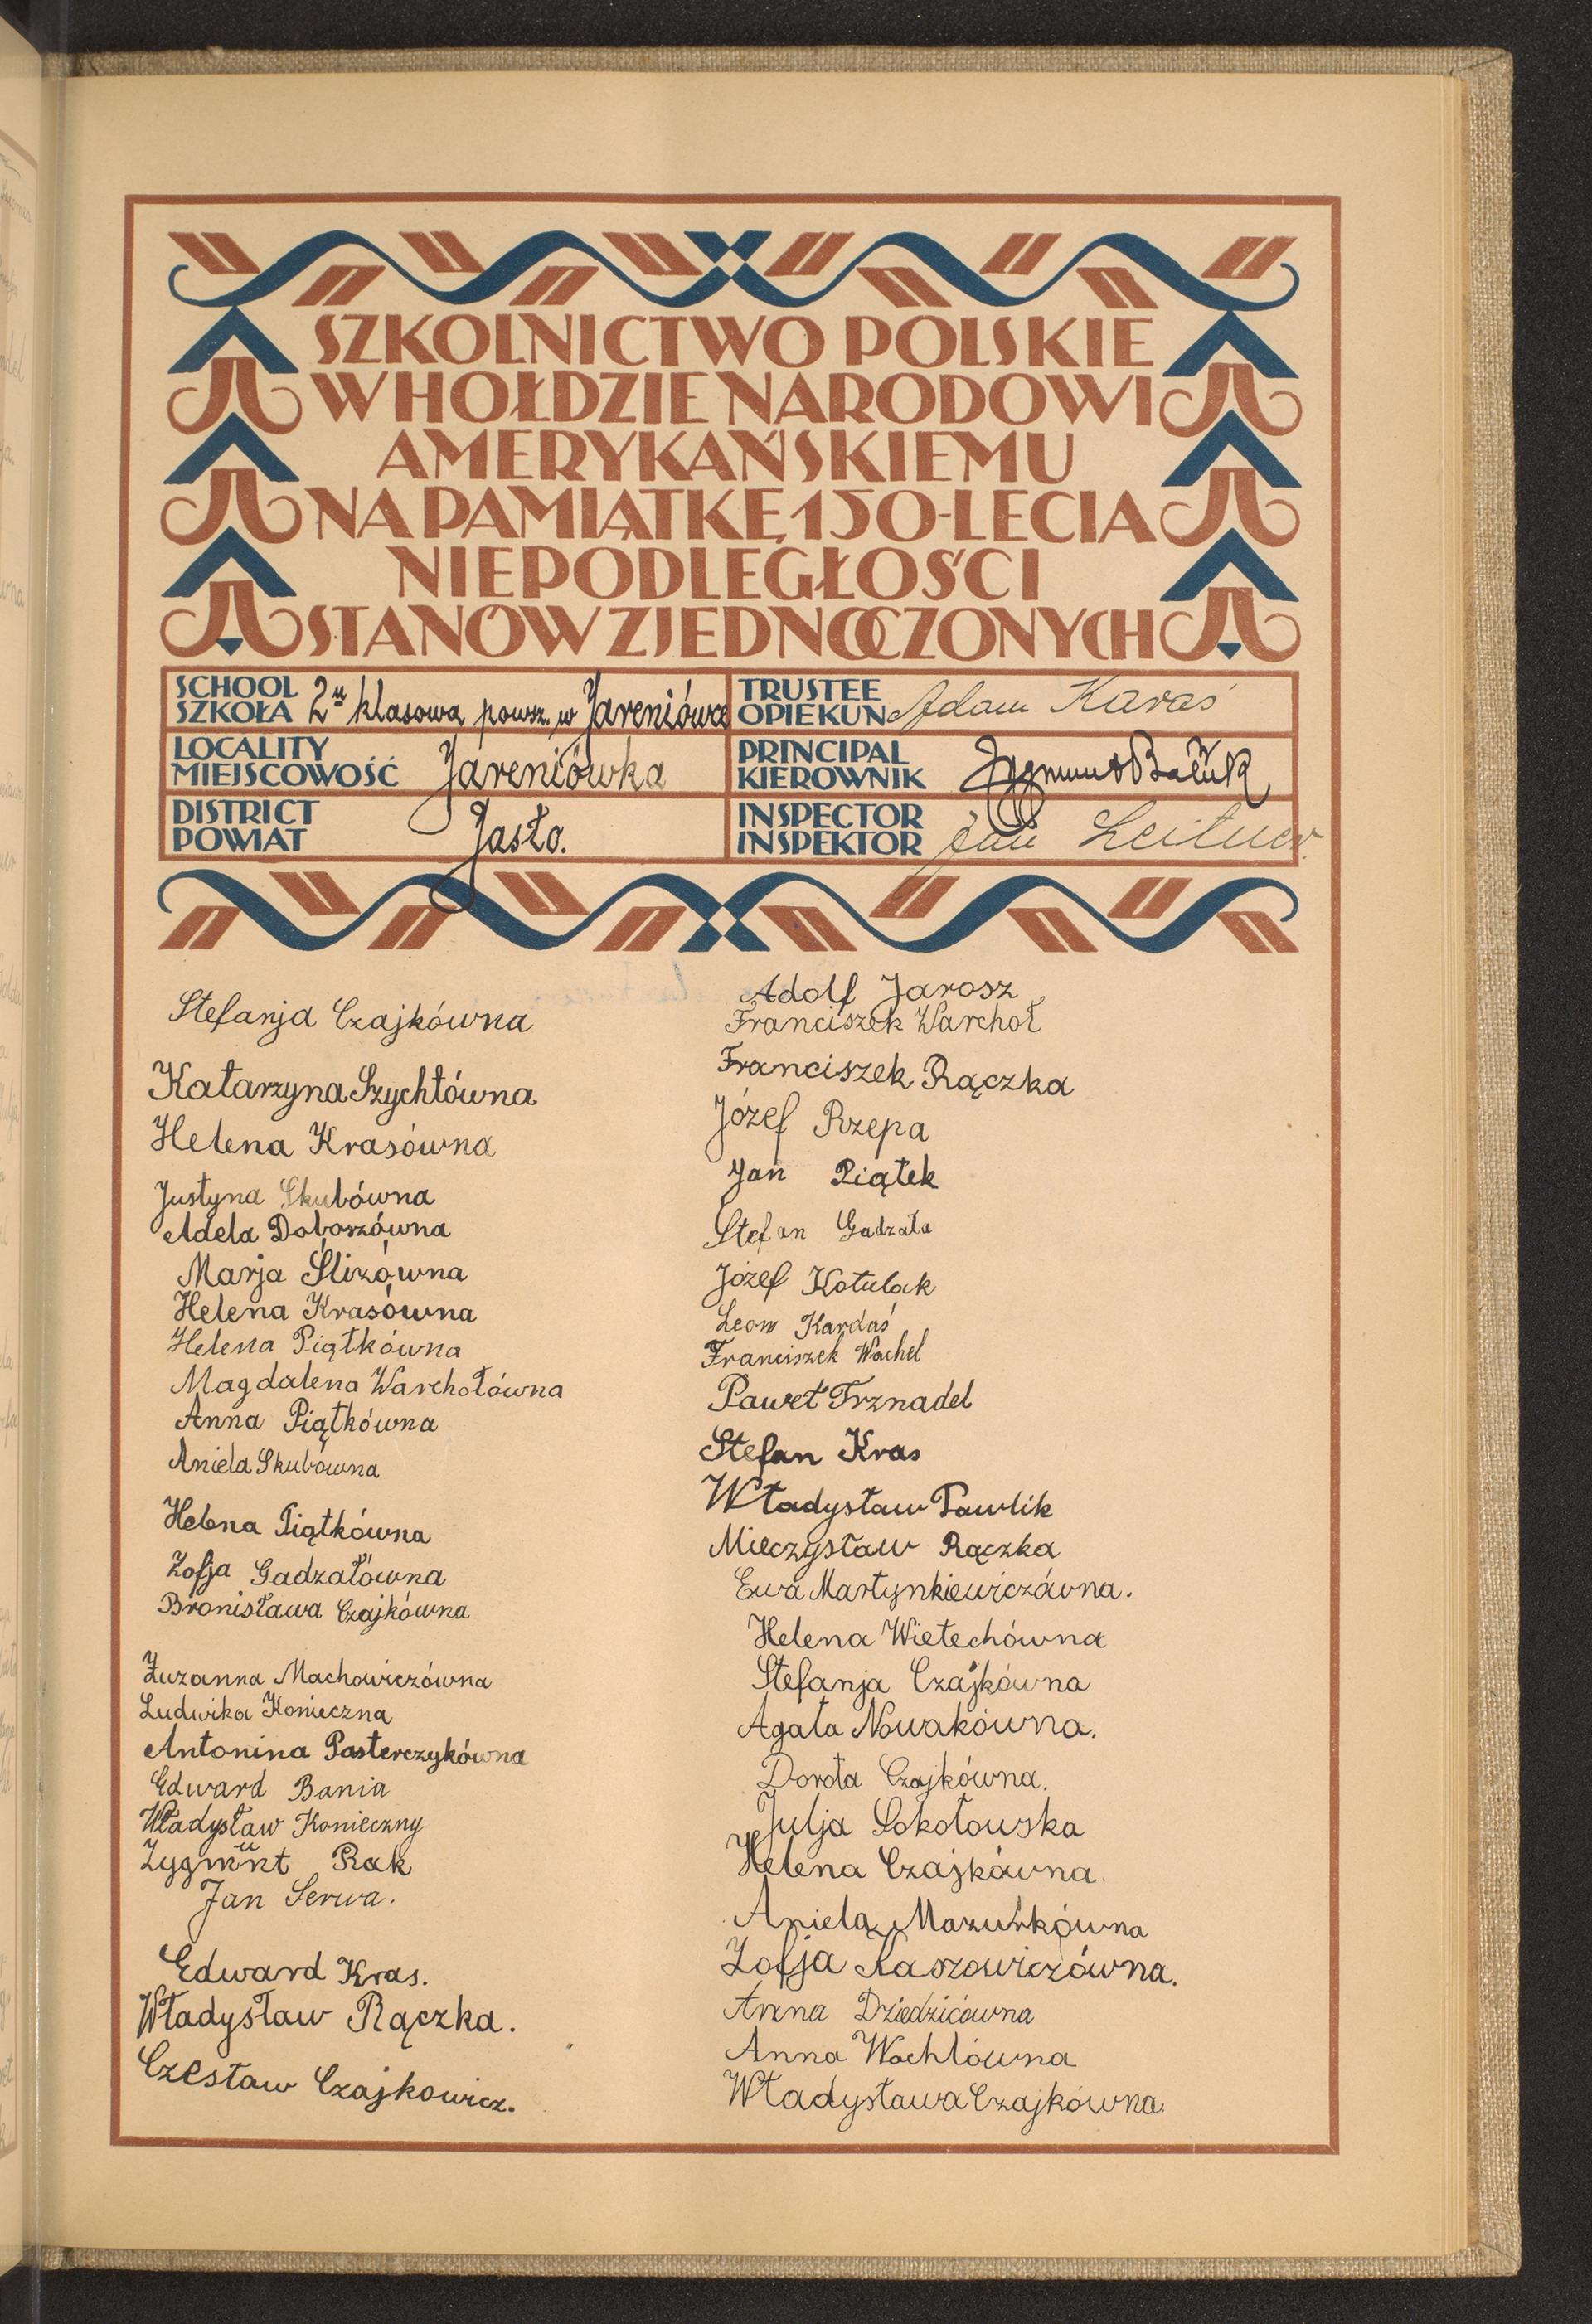 SZKOLNICTWO POLSKIE
W HOŁDZIE NARODOWI
AMERYKAŃSKIEMU
NA PAMIĄTKĘ 150-LECIA
NIEPODLEGŁOŚCI
STANÓW ZJEDNOCZONYCH
SCHOOL
SZKOŁA 2u klasowa powsz. w Jareniówce
LOCALITY
MIEJSCOWOŚĆ Jareniówka
DISTRICT
POWIAT Jasło.
TRUSTEE
OPIEKUN Adam Karaś
PRINCIPAL
KIEROWNIK Zygmunt
INSPECTOR
INSPEKTOR Jan Leitner.
Stefanja Czajkówna
Katarzyna Szychtówna
Helena Krasówna
Justyna Skubówna
Adela Doboszówna
Marja Ślizówna
Helena Krasówna
Helena Piątkówna
Magdalena Warchołówna
Anna Piątkówna
Aniela Skubówna
Helena Piątkówna
Zofja Gadzałówna
Bronisława Czajkówna
Zuzanna Machowiczówna
Ludwika Konieczna
Antonina Pasterczykówna
Edward Bania
Władysław Konieczny
Zygmunt Rak
Jan Serwa.
Edward Kras.
Władysław Rączka.
Czesław Czajkowicz.
Adolf Jarosz
Franciszek Warchoł
Franciszek Rączka
Józef Rzepa
Jan Piątek
Stefan Gadzała
Józef Kotulak
Leon Kardaś
Franciszek Wachel
Paweł Trznadel
Stefan Kras
Władysław Pawlik
Mieczysław Rączka
Ewa Martynkiewiczówna.
Helena Wietechówna
Stefanja Czajkówna
Agata Nowakówna.
Dorota Czajkówna.
Julja Sokołowska
Helena Czajkówna.
Aniela Mazurkówna
Zofja Raszowiczówna.
Anna Dziedzicówna
Anna Wachlówna
Władysława Czajkówna.